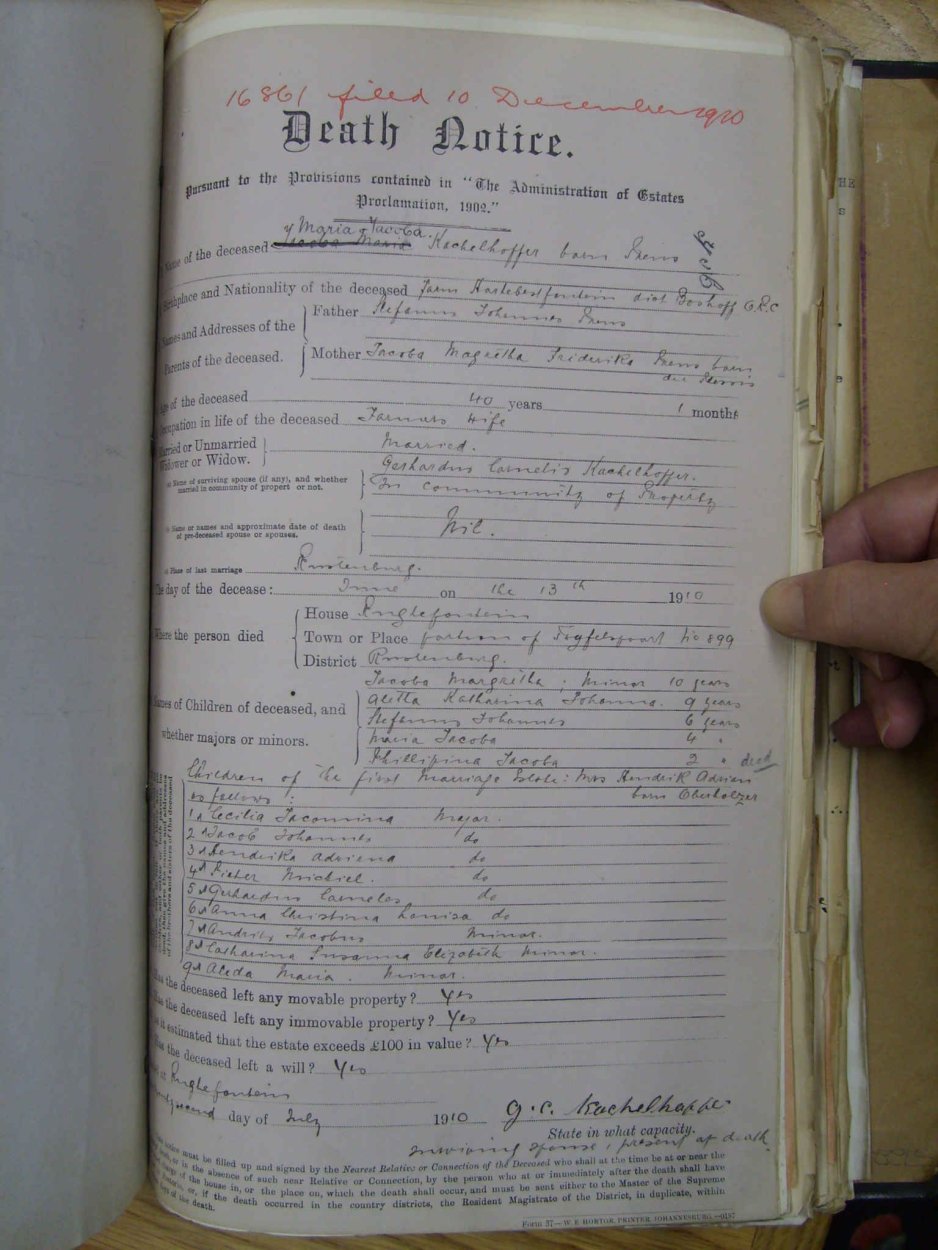 16861 filed 10 December 1910
Death Notice.
Pursuant to the Provisions contained in "The Administration of Estates
Proclamation, 1902."
Maria Jacoba
Name of the deceased Jacoba Maria Kachelhoffer born
Birthplace and Nationality of the deceased Farm Hartebestfontein dist Boshoff O.R.C
Names and Addresses of the
Parents of the deceased.
Father Stefanus Johannes
Mother Jacoba Magretha Friderika born
Age of the deceased 40 years 1 months
Occupation in life of the deceased Farmers Wife
Married or Unmarried
Widower or Widow.
Married.
(a) Name of surviving spouse (if any), and whether
married in community of propert or not.
Gerhardus Cornelis Kachelhoffer.
In community of Property
Name or names and approximate date of death
of pre-deceased spouse or spouses.
Nil.
Place of last marriage Rustenburg.
The day of the decease: June on the 13th 1910
Where the person died
House Kuglefontein
Town or Place portion of No 899
District Rustenburg.
Names of Children of deceased, and
whether majors or minors.
Jacoba Margretha : Minor 10 years
Aletta Katharina Johanna. 9 years
Stefanus Johannes 6 years
Maria Jacoba 4 "
Phillipina Jacoba 2 " died
Children of the first Marriage Mrs Hendrik Adrian
as follows : born Oberholzer
1 Cecilia Jacomina Major.
2 Jacob Johannes do
3 Henderika Adriana do
4 Pieter Michiel. do
5 Gerhardus Cornelis do
6 Anna Christina Louisa do
7 Andries Jacobus Minor.
8 Catharina Susanna Elizabeth Minor.
9 Aleda Maria. Minor.
Has the deceased left any movable property? Yes
Has the deceased left any immovable property? Yes
Is it estimated that the estate exceeds £100 in value? Yes
Has the deceased left a will? Yes
at Kuglefontein
second day of July 1910 G. C. Kachelhoffer
State in what capacity.
Surviving spouse present at death
notice must be filled up and signed by the Nearest Relative or Connection of the Deceased who shall at the time be at or near the
death, or in the absence of such near Relative or Connection, by the person who at or immediately after the death shall have
charge of the house in, or the place on, which the death shall occur, and must be sent either to the Master of the Supreme
or, if the death occurred in the country districts, the Resident Magistrate of the District, in duplicate, within
of the death.
Form 37—W. E HORTOR, PRINTER, JOHANNESBURG.—0187